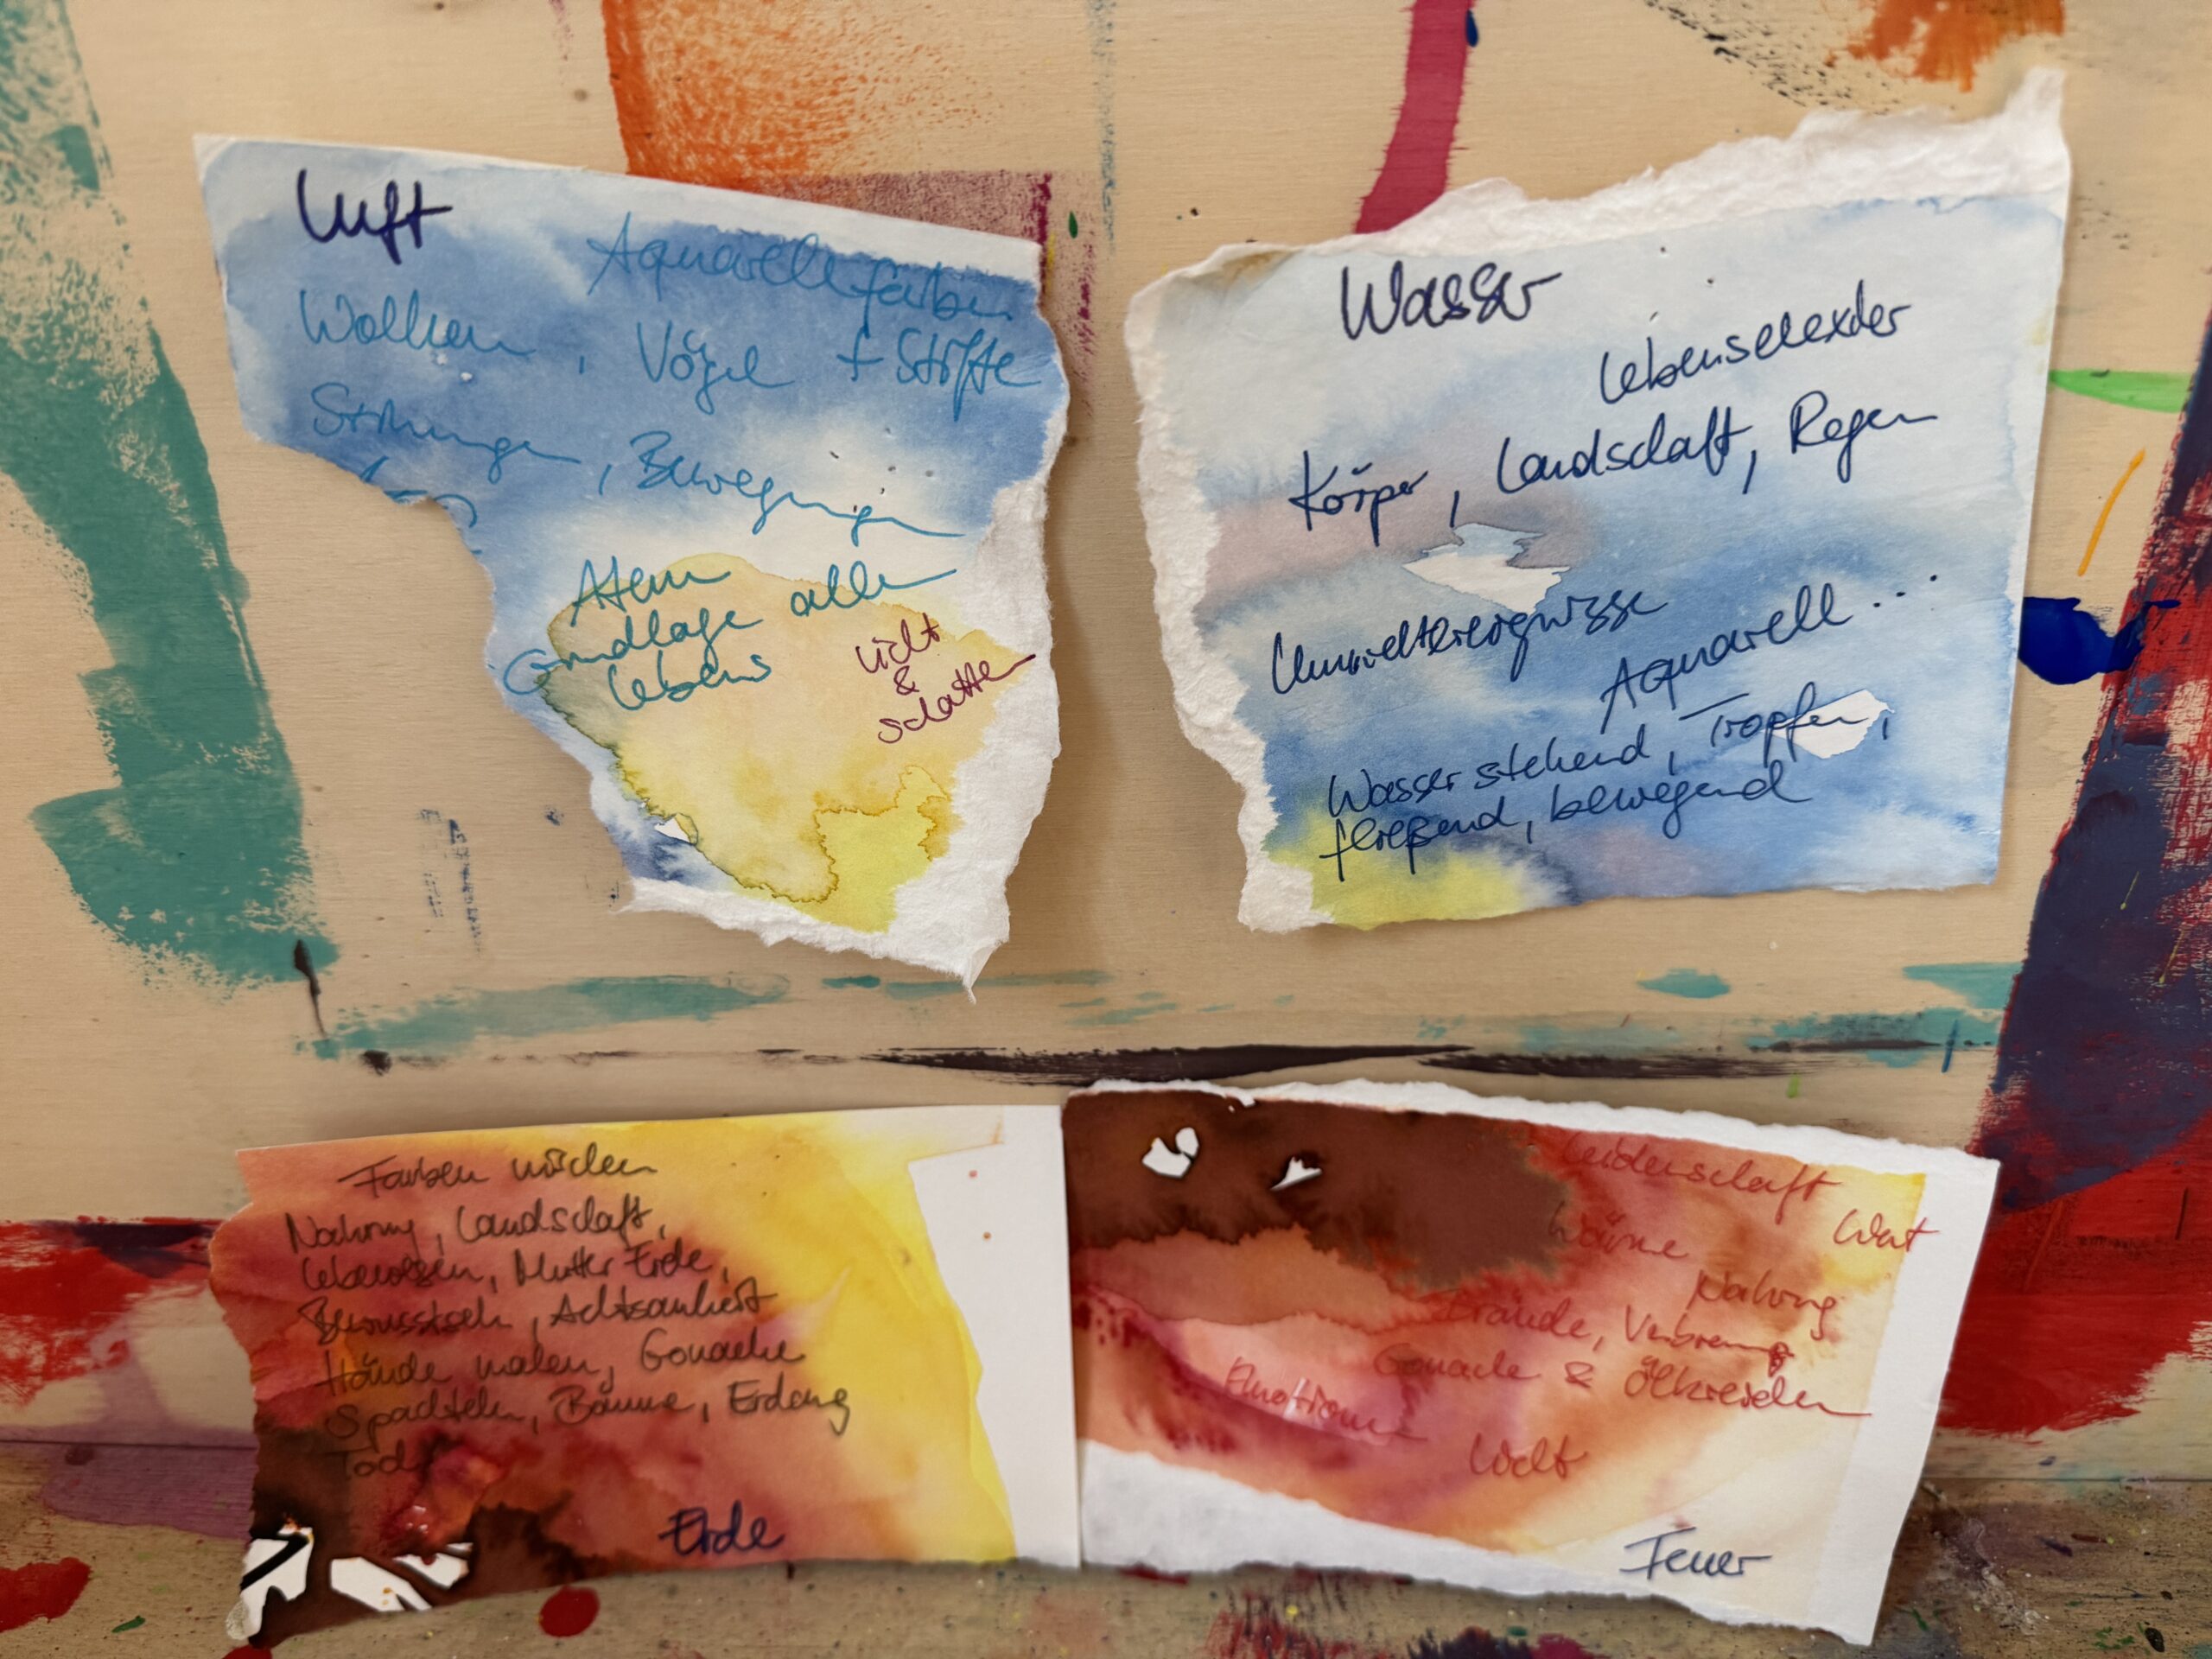 Luft
Aquarellfarben
Wolken, Vögel + Stifte
Bewegungen
Atem
Grundlage allen
Lebens
Licht
&
Schatten
Wasser
Lebenselexier
Körper, Landschaft, Regen
Umweltereignisse
Aquarell...
Wasser stehend, Tropfen,
fließend, bewegend
Farben mischen
Nahrung, Landschaft,
Lebewesen, Mutter Erde,
Bewusstsein, Achtsamkeit
Hände malen, Gouache
Spachteln, Bäume, Erdung
Tod
Erde
Leidenschaft
Wut
Wärme
Nahrung
Brände, Verbrennung
Gouache & Ölkreiden
Emotionen
Licht
Feuer